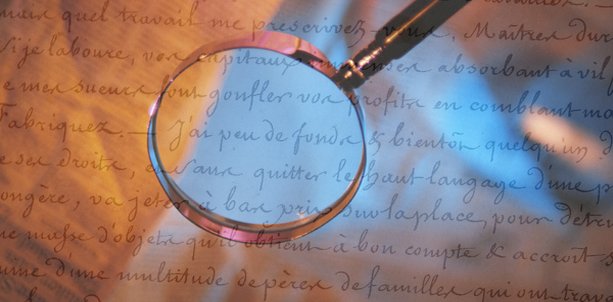 mais quel travail me prescrivez-vous, Maîtres dur
Si je laboure, vos capitaux absorbant à vil
e mes sueurs font gonfler vos profits en comblant ma
Fabriquez. — J'ai peu de fonds & bientôt quelqu'un d
e ses droits, quitter le haut langage d'une p
ongère, va jeter à bas prix sur la place, pour détru
ne masse d'objets qu'il obtient à bon compte & accroit s
ume d'une multitude de pères de familles qui ont trav